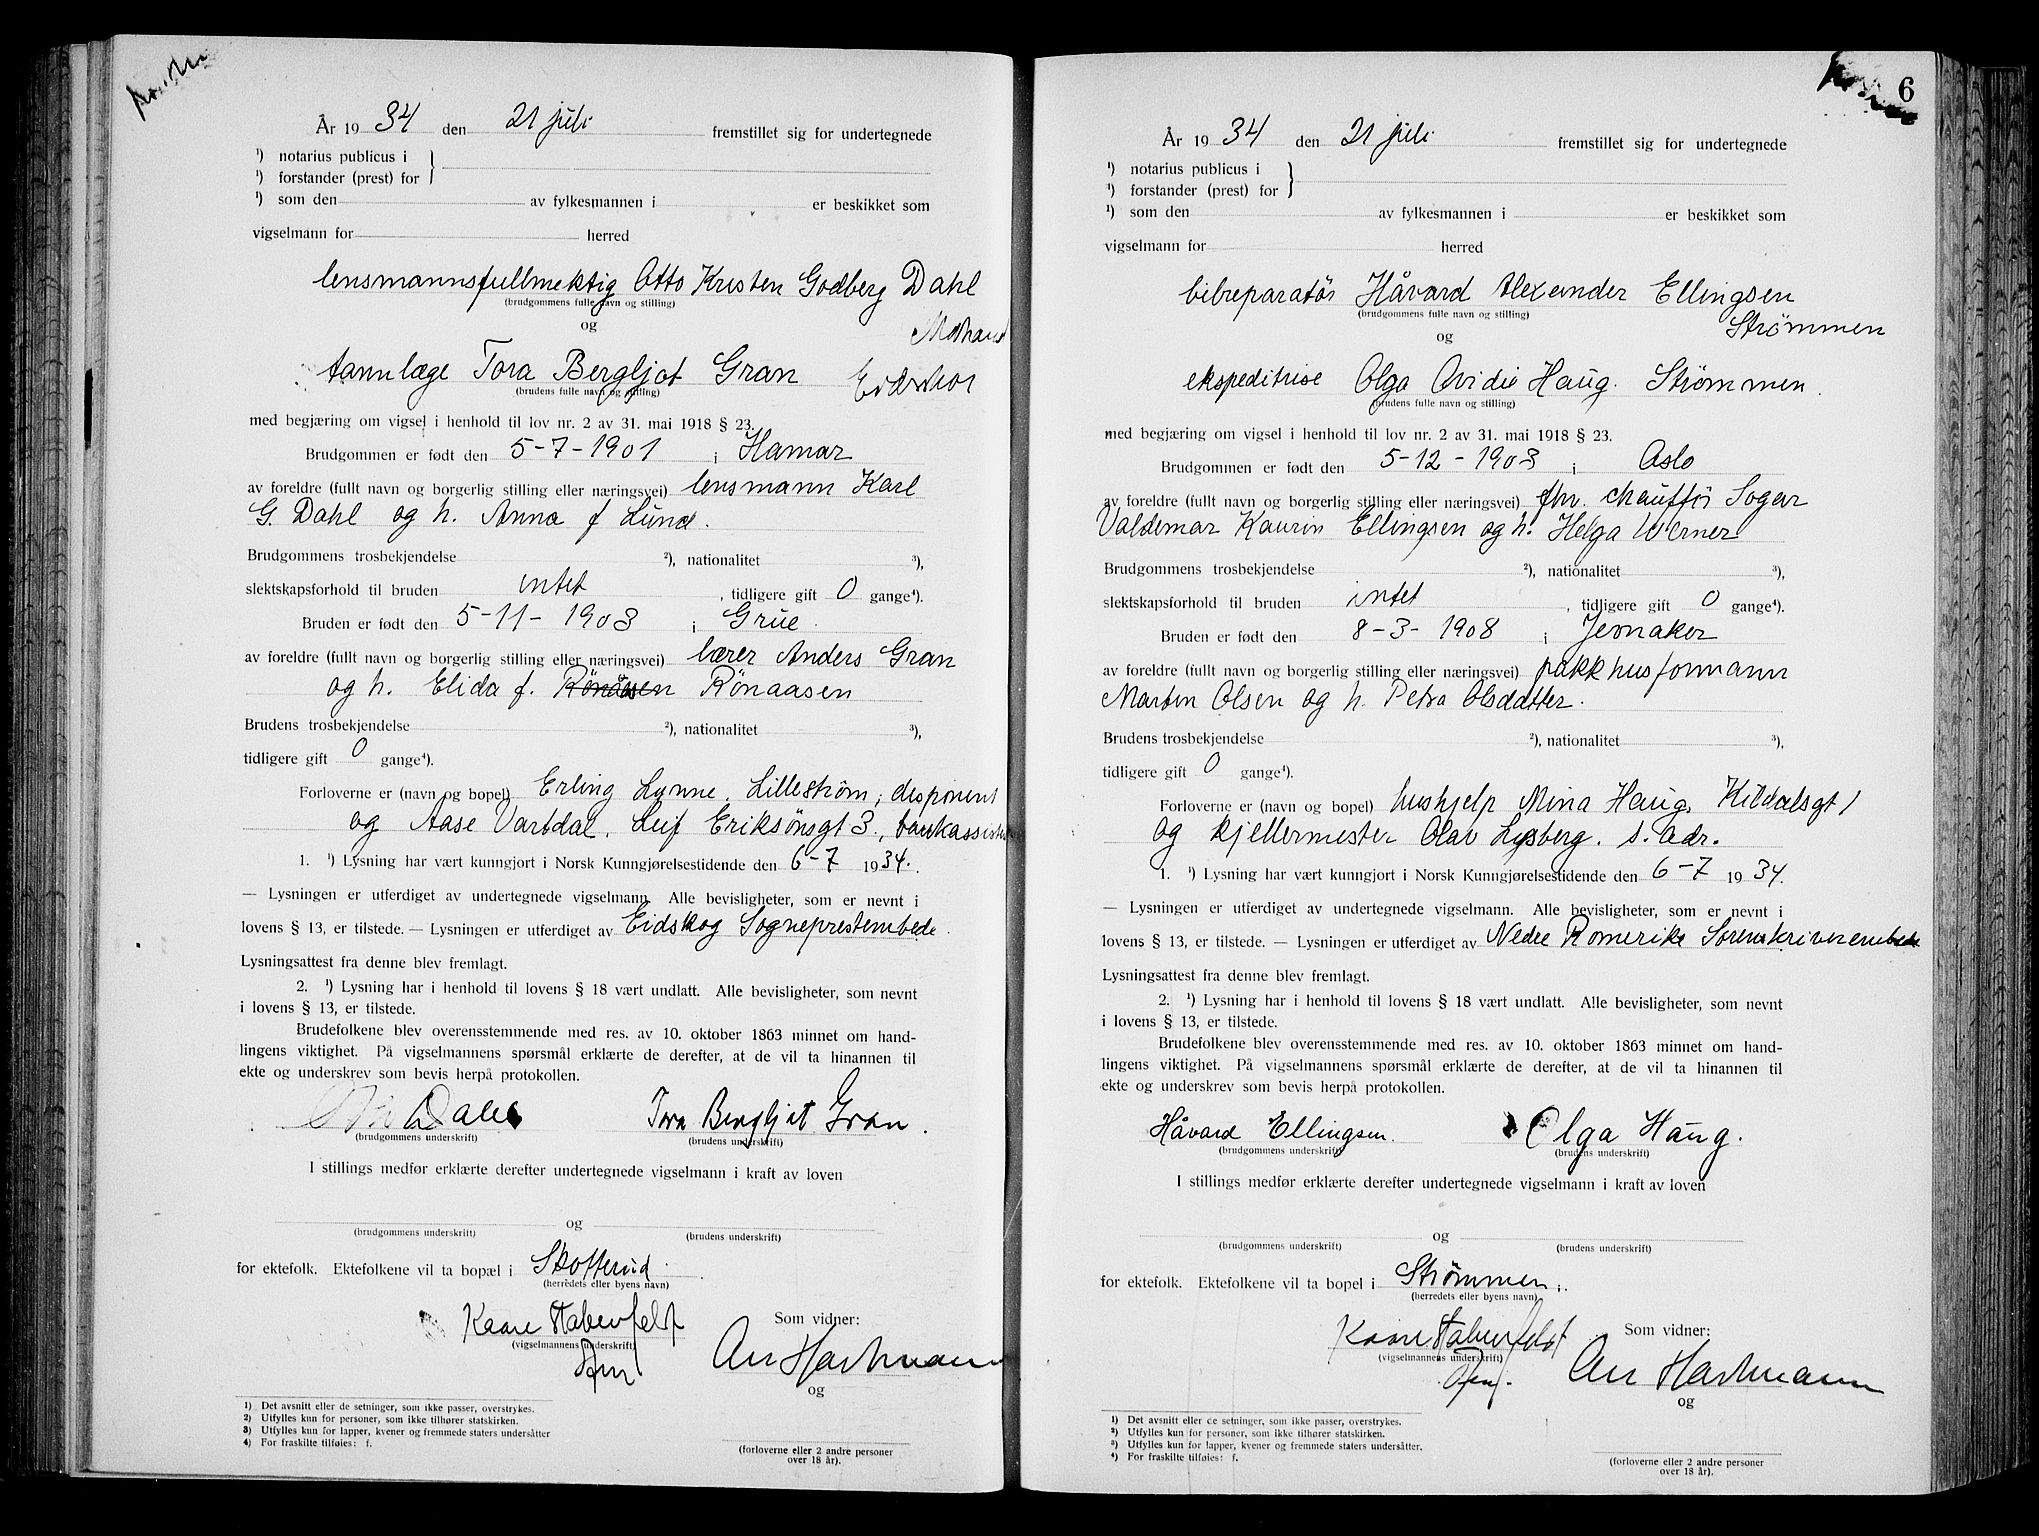 År 1934 den 21 juli fremstillet sig for undertegnede
¹) notarius publicus i
¹) forstander (prest) for
¹) som den av fylkesmannen i er beskikket som
vigselmann for herred
lensmannsfullmektig Otto Kristen Godberg Dahl
(brudgommens fulle navn og stilling)
og
tannlæge Tora Bergljot Gran
(brudens fulle navn og stilling)
med begjæring om vigsel i henhold til lov nr. 2 av 31. mai 1918 § 23.
Brudgommen er født den 5-7-1901 i Hamar
av foreldre (fullt navn og borgerlig stilling eller næringsvei) lensmann Karl
G. Dahl og h. Anna f Lund.
Brudgommens trosbekjendelse ²), nationalitet ³),
slektskapsforhold til bruden intet, tidligere gift 0 gange⁴).
Bruden er født den 5-11-1903 i Grue.
av foreldre (fullt navn og borgerlig stilling eller næringsvei) lærer Anders Gran
og h. Elida f. Rönaasen
Brudens trosbekjendelse ²), nationalitet ³),
tidligere gift 0 gange⁴).
Forloverne er (navn og bopel) Erling Lynne, Lilleström, disponent
og Aase Vartdal, Leif Eriksönsgt 3., bankassist
1. ¹) Lysning har vært kunngjort i Norsk Kunngjørelsestidende den 6-7 1934.
— Lysningen er utferdiget av undertegnede vigselmann. Alle bevisligheter, som er nevnt i
lovens § 13, er tilstede. — Lysningen er utferdiget av Eidskog Sogneprestembede.
Lysningsattest fra denne blev fremlagt.
2. ¹) Lysning har i henhold til lovens § 18 vært undlatt. Alle bevisligheter, som nevnt
i lovens § 13, er tilstede.
Brudefolkene blev overensstemmende med res. av 10. oktober 1863 minnet om hand-
lingens viktighet. På vigselmannens spørsmål erklærte de derefter, at de vil ta hinannen til
ekte og underskrev som bevis herpå protokollen.
Tora Bergljot Gran.
(brudgommens underskrift) (brudens underskrift)
I stillings medfør erklærte derefter undertegnede vigselmann i kraft av loven
og
(brudgommens underskrift) (brudens underskrift)
for ektefolk. Ektefolkene vil ta bopæl i Skotterud.
(herredets eller byens navn)
Kaare Som vidner:
(vigselmannens underskrift) Hartmann
og
1) Det avsnitt eller de setninger, som ikke passer, overstrykes.
2) Utfylles kun for personer, som ikke tilhører statskirken.
3) Utfylles kun for lapper, kvener og fremmede staters undersåtter
4) For fraskilte tilføies: f.
(forloverne eller 2 andre personer
over 18 år).
6
År 1934 den 21 juli fremstillet sig for undertegnede
¹) notarius publicus i
¹) forstander (prest) for
¹) som den av fylkesmannen i er beskikket som
vigselmann for herred
bilreparatör Håvard Alexander Ellingsen
(brudgommens fulle navn og stilling)
Strømmen
og
ekspeditrise Olga Ovidie Haug. Strømmen.
(brudens fulle navn og stilling)
med begjæring om vigsel i henhold til lov nr. 2 av 31. mai 1918 § 23.
Brudgommen er født den 5-12-1903 i Oslo
av foreldre (fullt navn og borgerlig stilling eller næringsvei) fhv. chauffør
Valdemar Kaurin Ellingsen og h. Helga Werner
Brudgommens trosbekjendelse ²), nationalitet ³),
slektskapsforhold til bruden intet, tidligere gift 0 gange⁴).
Bruden er født den 8-3-1908 i Jevnaker
av foreldre (fullt navn og borgerlig stilling eller næringsvei) pakkhusformann
Martin Olsen og h. Petra Olsdatter.
Brudens trosbekjendelse ²), nationalitet ³),
tidligere gift 0 gange⁴).
Forloverne er (navn og bopel) hushjelp Mina Haug, Kildalsgt 1
og kjellermester Olav Lysberg. s. adr.
1. ¹) Lysning har vært kunngjort i Norsk Kunngjørelsestidende den 6-7 1934.
— Lysningen er utferdiget av undertegnede vigselmann. Alle bevisligheter, som er nevnt i
lovens § 13, er tilstede. — Lysningen er utferdiget av Nedre Romerike Sorenskriverembede
Lysningsattest fra denne blev fremlagt.
2. ¹) Lysning har i henhold til lovens § 18 vært undlatt. Alle bevisligheter, som nevnt
i lovens § 13, er tilstede.
Brudefolkene blev overensstemmende med res. av 10. oktober 1863 minnet om hand-
lingens viktighet. På vigselmannens spørsmål erklærte de derefter, at de vil ta hinannen til
ekte og underskrev som bevis herpå protokollen.
Håvard Ellingsen. Olga Haug.
(brudgommens underskrift) (brudens underskrift)
I stillings medfør erklærte derefter undertegnede vigselmann i kraft av loven
og
(brudgommens underskrift) (brudens underskrift)
for ektefolk. Ektefolkene vil ta bopel i Strømmen.
(herredets eller byens navn)
Kaare Som vidner:
(vigselmannens underskrift) Hartmann
og
1) Det avsnitt eller de setninger, som ikke passer, overstrykes.
2) Utfylles kun for personer, som ikke tilhører statskirken.
3) Utfylles kun for lapper, kvener og fremmede staters undersåtter.
4) For fraskilte tilføies: f.
(forloverne eller 2 andre personer
over 18 år).